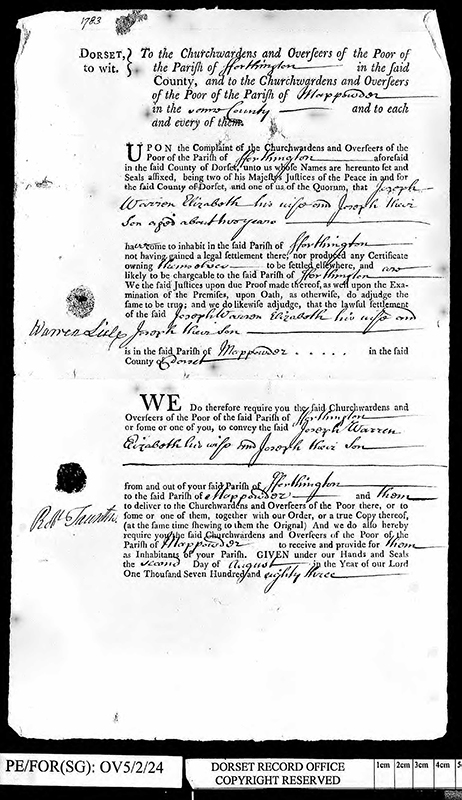 1783
DORSET, } To the Churchwardens and Overſeers of the Poor of
to wit. } the Pariſh of fforthington in the ſaid
County, and to the Churchwardens and Overſeers
of the Poor of the Pariſh of Mappowder
in the same County and to each
and every of them.
UPON the Complaint of the Churchwardens and Overſeers of the
Poor of the Pariſh of fforthington aforeſaid
in the ſaid County of Dorſet, unto us whoſe Names are hereunto ſet and
Seals affixed, being two of his Majeſty's Juſtices of the Peace in and for
the ſaid County of Dorſet, and one of us of the Quorum, that Joseph
Warren Elizabeth his wife and Joseph their
Son aged about two years
have come to inhabit in the ſaid Pariſh of fforthington
not having gained a legal ſettlement there, nor produced any Certificate
owning themselves to be ſettled elſewhere, and are
likely to be chargeable to the ſaid Pariſh of fforthington
We the ſaid Juſtices upon due Proof made thereof, as well upon the Exa-
mination of the Premiſes, upon Oath, as otherwiſe, do adjudge the
ſame to be true; and we do likewiſe adjudge, that the lawful ſettlement
of the ſaid Joseph Warren Elizabeth his wife and
Joseph their Son
Warren
is in the ſaid Pariſh of Mappowder in the ſaid
County of Dorset
WE Do therefore require you the ſaid Churchwardens and
Overſeers of the Poor of the ſaid Pariſh of fforthington
or ſome or one of you, to convey the ſaid Joseph Warren
Elizabeth his wife and Joseph their Son
from and out of your ſaid Pariſh of fforthington
to the ſaid Pariſh of Mappowder and them
to deliver to the Churchwardens and Overſeers of the Poor there, or to
ſome or one of them, together with our Order, or a true Copy thereof,
(at the ſame time ſhewing to them the Orignal) And we do alſo hereby
require you the ſaid Churchwardens and Overſeers of the Poor of the
Pariſh of Mappowder to receive and provide for them
as Inhabitants of your Pariſh. GIVEN under our Hands and Seals
the second Day of August in the Year of our Lord
One Thouſand Seven Hundred and eighty three
PE/FOR(SG): OV5/2/24
DORSET RECORD OFFICE
COPYRIGHT RESERVED
1cm 2cm 3cm 4cm